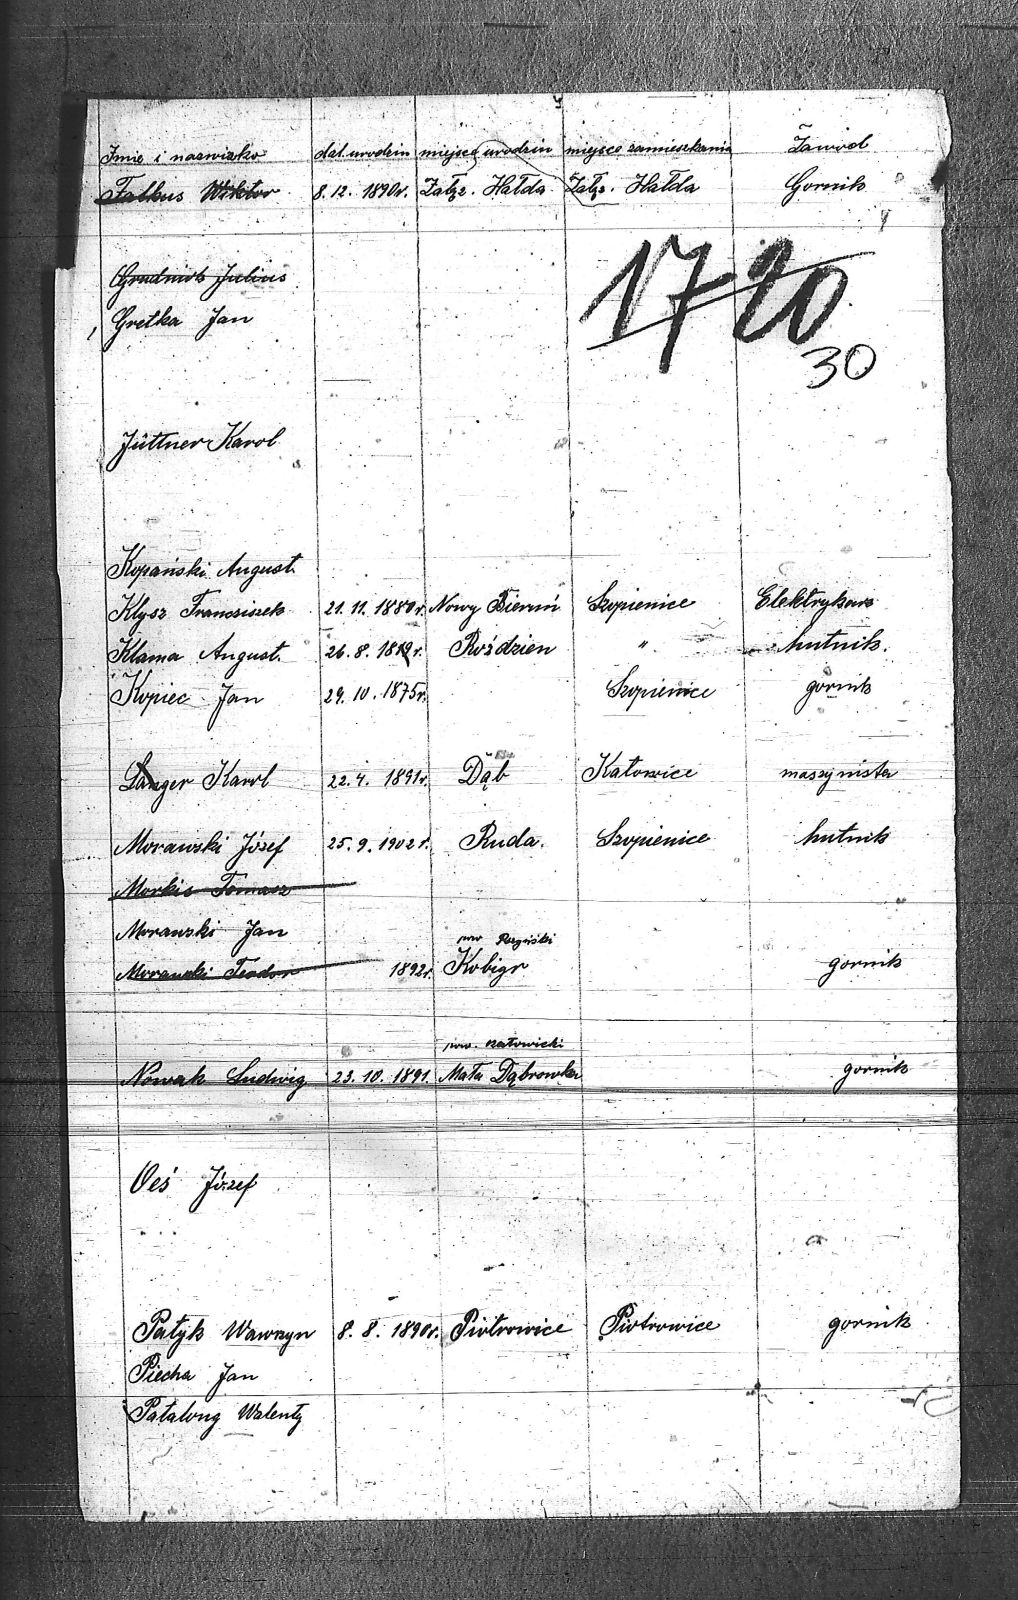 Imię i nazwisko dat. urodzin miejsce urodzin miejsce zamieszkania Zawód
Falkus Wiktor 8. 12. 1890r. Załęz. Hałda Załęz. Hałda Gornik
17 20
Grudniok Juljus
Gretka Jan
30
Jüttner Karol
Kopański August
Klysz Franciszek 21. 11. 1880r. Nowy Bieruń Szopienice
Klama August 26. 8. Roździen " hutnik.
Kopiec Jan 29. 10. 1875r. Szopienice gornik
Langer Karol 22. 4. 1891r. Dąb Katowice maszynista
Morawski Józef 25. 9. 1902r. Ruda. Szopienice hutnik
Morkis Tomasz
Morawski Jan
pow
Morawski Teodor 1892r. Kobiór gornik
pow. Katowicki
Nowak Ludwig 23. 10. 1891. Mała Dąbrowka gornik
Oeś Józef
Patyk Wawrzyn 8. 8. 1890r. Piotrowice Piotrowice gornik
Piecha Jan
Patalong Walenty